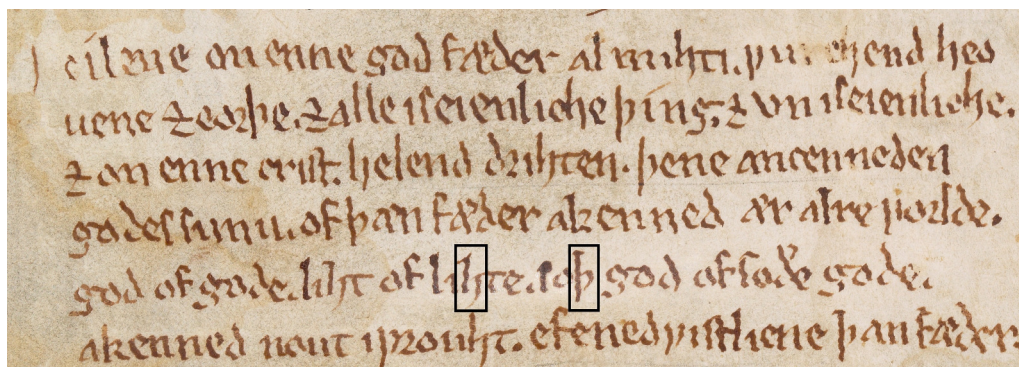 on enne god fæder almihti. ƿurchend heo
uene ⁊ eorþe. ⁊ alle iseienliche þing. ⁊ vn iseienliche.
⁊ on enne crist. helend drihten. þene ancenneden
godes sunu. of þan fæder akenned ær alre ƿorlde.
god of gode. liht of lihte. soþ god of soðe gode.
akenned nout iƿrouht. efenedƿistliene þan fæder.